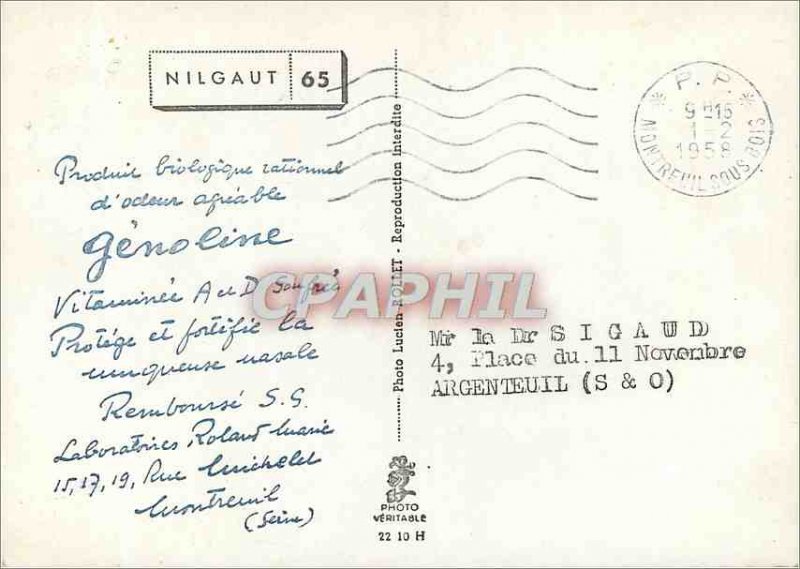 NILGAUT 65
Produit biologique rationnel
d'odeur agréable
Génoline
Vitaminée A et D Soufrée
Protège et fortifie la
muqueuse nasale
Remboursé S.S.
Laboratoires Roland Marie
15, 17, 19, Rue Michelet
Montreuil
(Seine)
Photo Lucien ROLLET - Reproduction interdite
PHOTO
VÉRITABLE
22 10 H
P. P.
9H15
1-2
1958
MONTREUIL SOUS BOIS
Mr le Dr SIGAUD
4, Place du.11 Novembre
ARGENTEUIL (S & O)
CPAPHIL